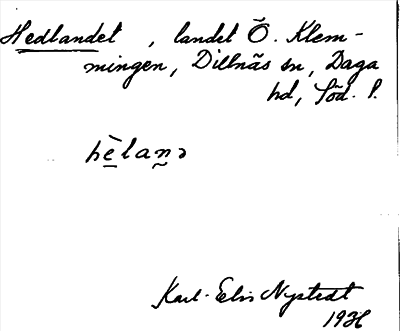 Hedlandet , landet Ö. Klem-
mingen, Dillnäs sn, Daga
hd, Söd. l.
hèlanə
Karl-Elis Nystedt
1936